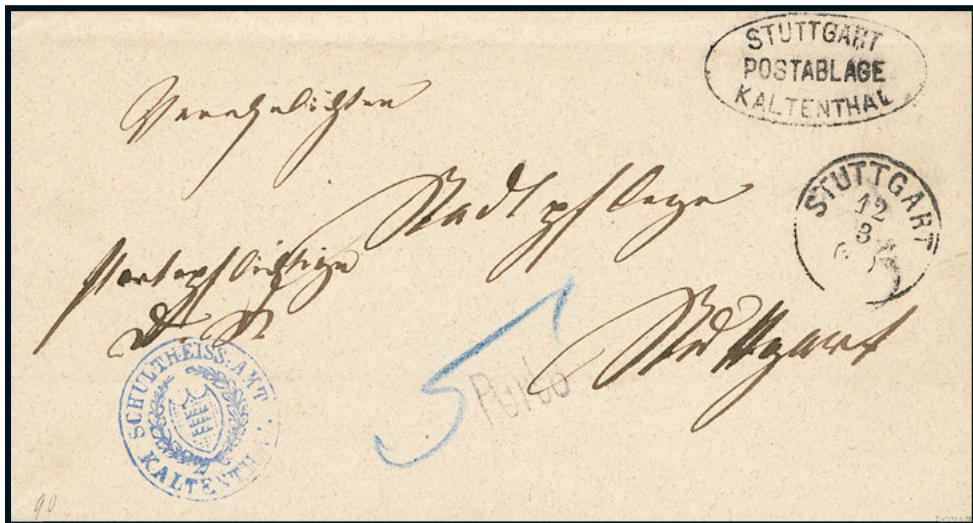 STUTTGART
POSTABLAGE
KALTENTHAL
STUTTGART
12
3
Stadtpflege
portopflichtige
D. S.
Stuttgart
5
Porto
SCHULTHEISS.AMT
KALTENTHAL
90